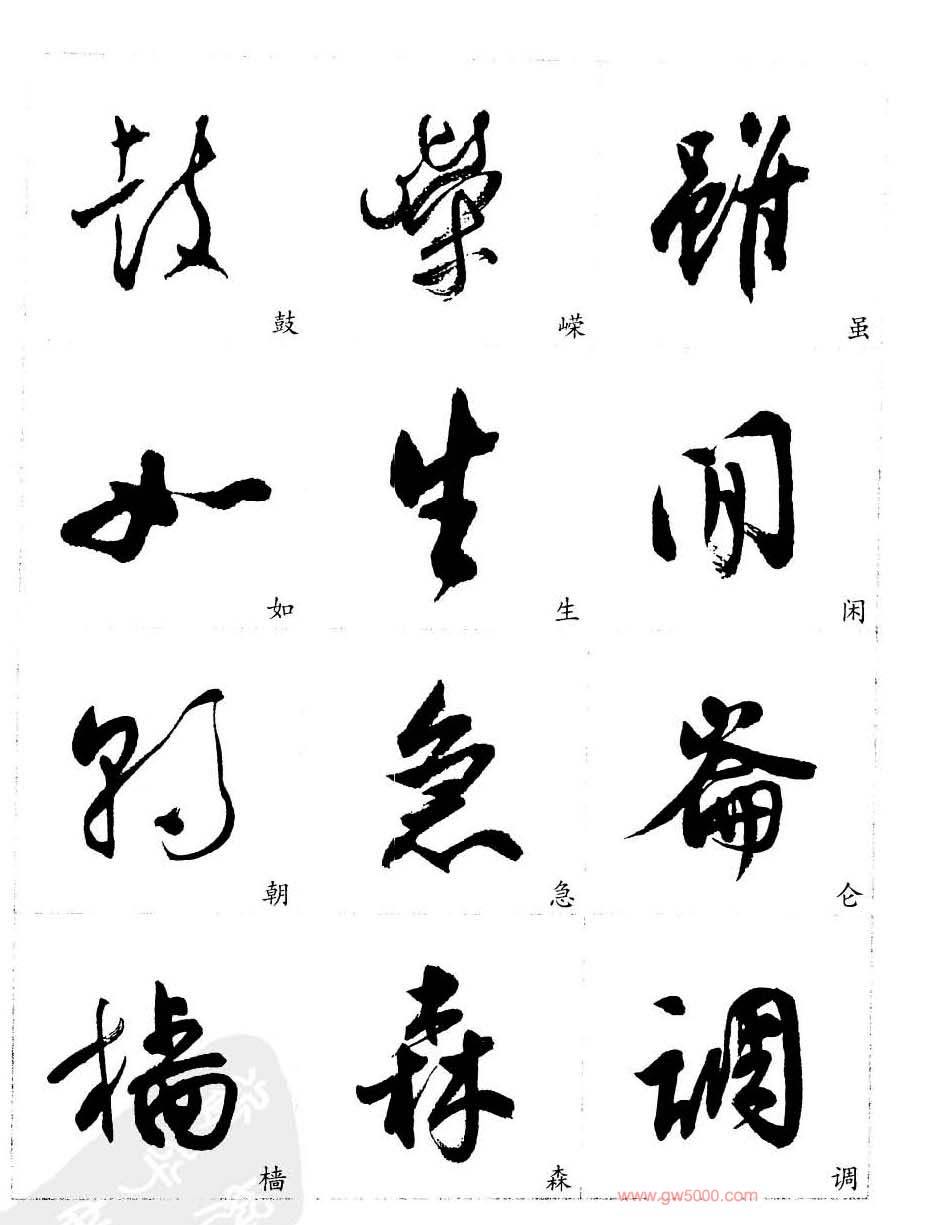 鼓 嵘 虽
如 生 闲
朝 急 仑
樯 森 调
www.gw5000.com